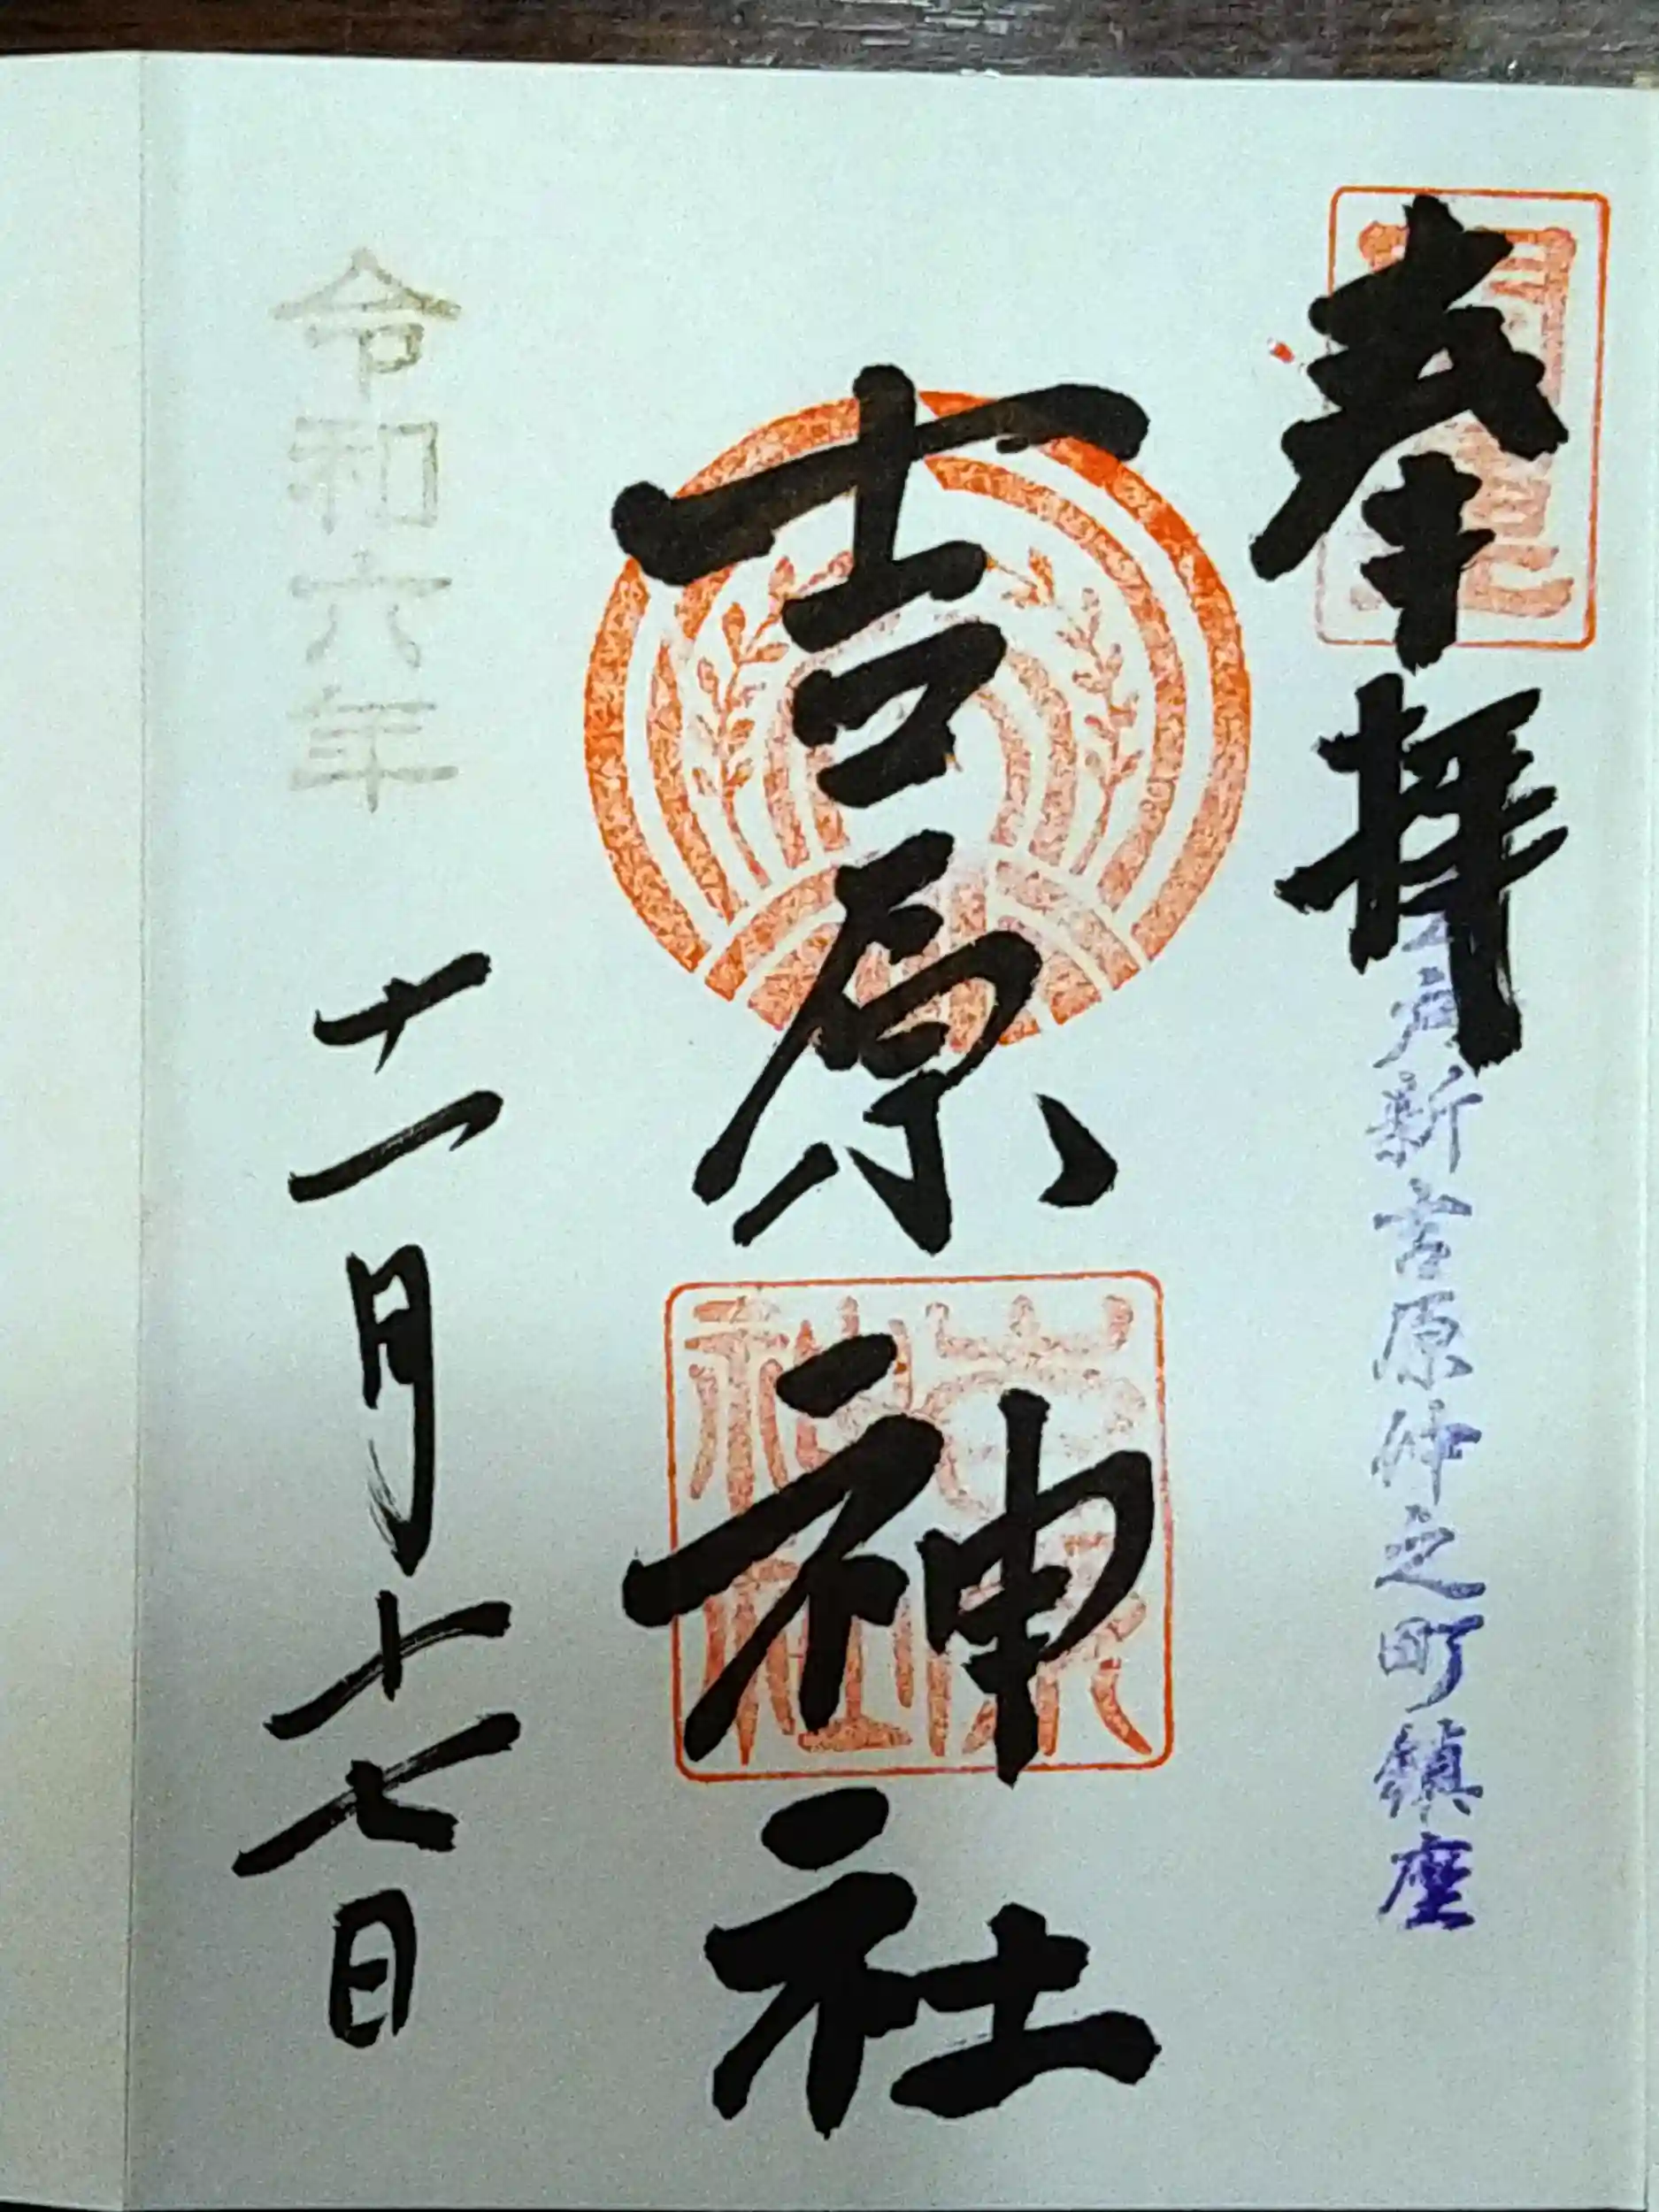 奉拝
江戸新吉原仲之町鎮座
吉原神社
吉原神社
令和六年
十一月十七日